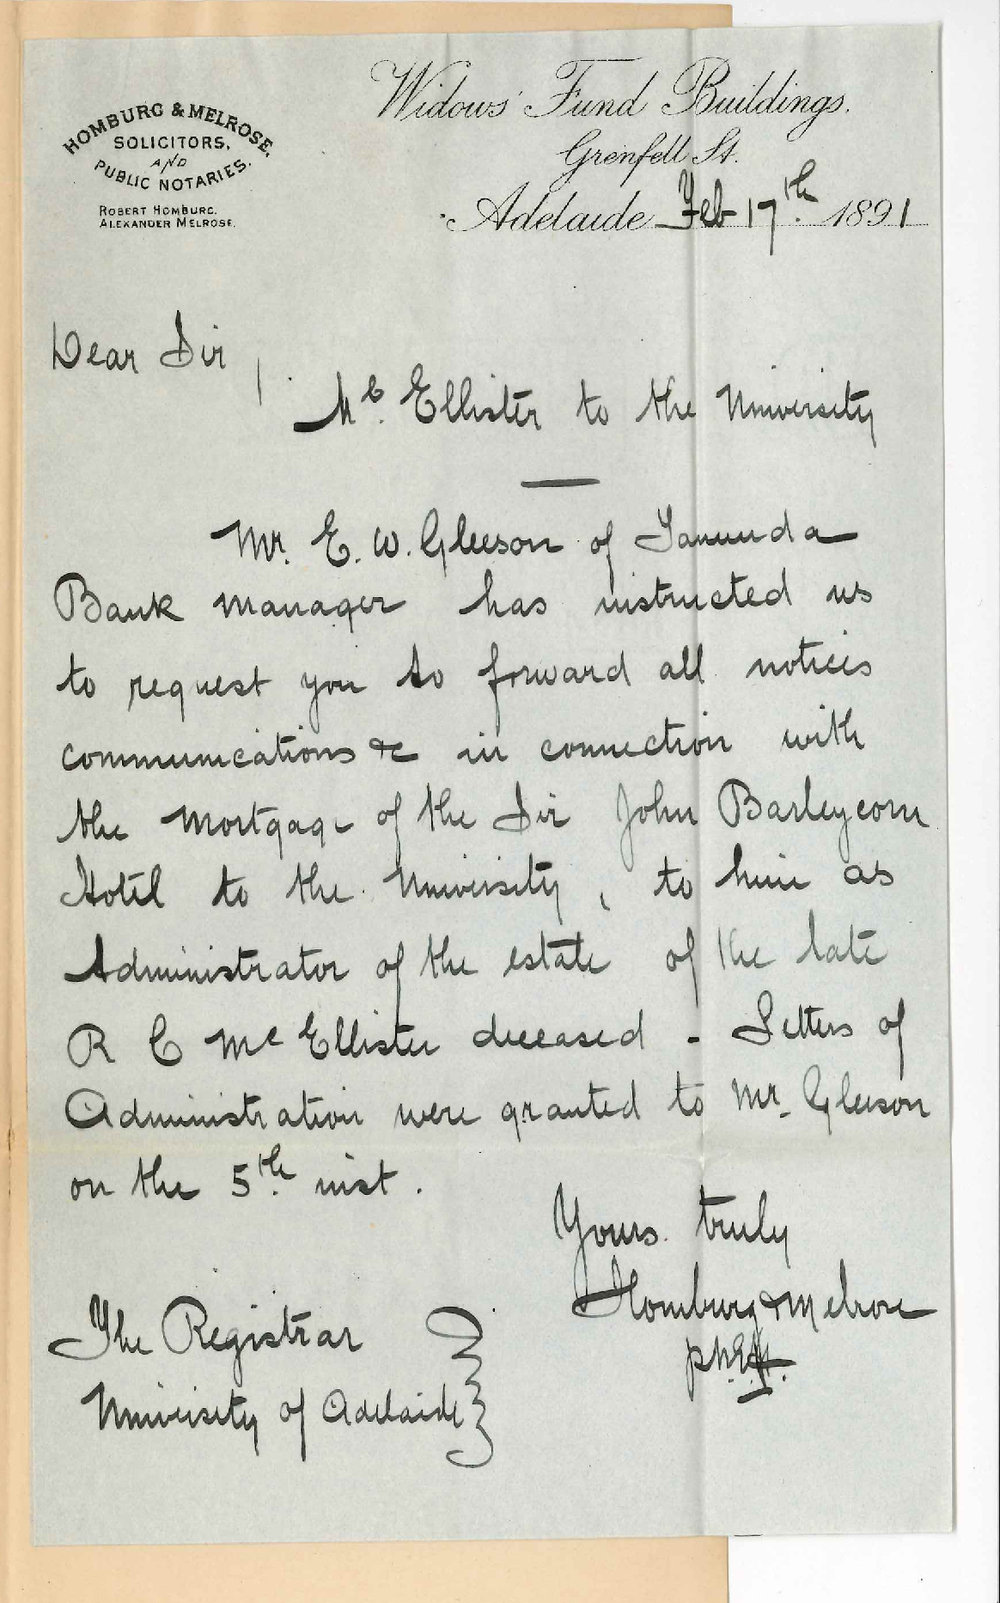 HOMBURG & MELROSE,
SOLICITORS,
AND
PUBLIC NOTARIES.
ROBERT HOMBURG.
ALEXANDER MELROSE.
Widows' Fund Buildings.
Grenfell St.
Adelaide Feb 17th. 1891
Dear Sir,
Mc. Ellister to the University
Mr. E. W. Gleeson of Tanunda
Bank manager has instructed us
to request you to forward all notices
communications &c in connection with
the mortgage of the Sir John Barleycorn
Hotel to the University, to him as
Administrator of the estate of the late
R C Mc Ellister deceased - Letters of
Administration were granted to Mr. Gleeson
on the 5th. inst.
Yours truly
Homburg & Melrose
The Registrar
University of Adelaide